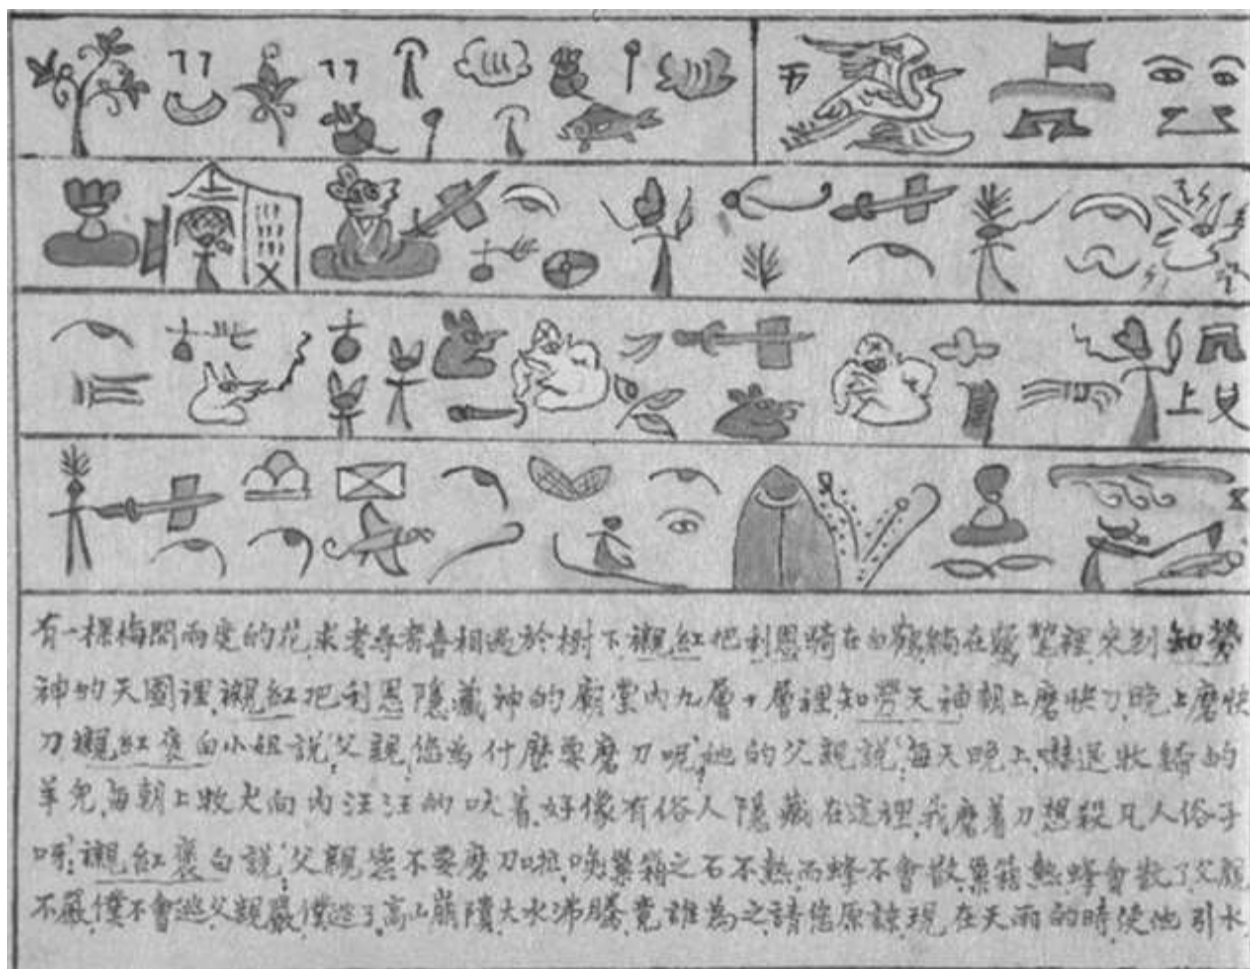 有一棵梅開兩度的花,求者尋者喜相遇於樹下.襯紅把利恩騎在白鶴,躺在翼 裡,來到知勞
神的天國裡,襯紅把利恩隱藏神的廟堂內九層十層裡,知勞天神朝上磨快刀,晚上磨快
刀,襯紅褒白小姐說:'父親,您為什麼要磨刀呢',她的父親說:'每天晚上,嚇退牧 的
羊兒,每朝上牧犬向內汪汪的吠着,好像有俗人隱藏在這裡,我磨着刀想殺凡人俗子
呀.'襯紅褒白說:'父親您不要磨刀啦,喚巢箱之石不熱而蜂不會散,巢箱熱,蜂會散了,父親
不嚴,僕不會逃,父親嚴,僕逃了,高山崩潰,大水沸騰,竟誰為之,請您原諒,現在天雨的時,使他引水